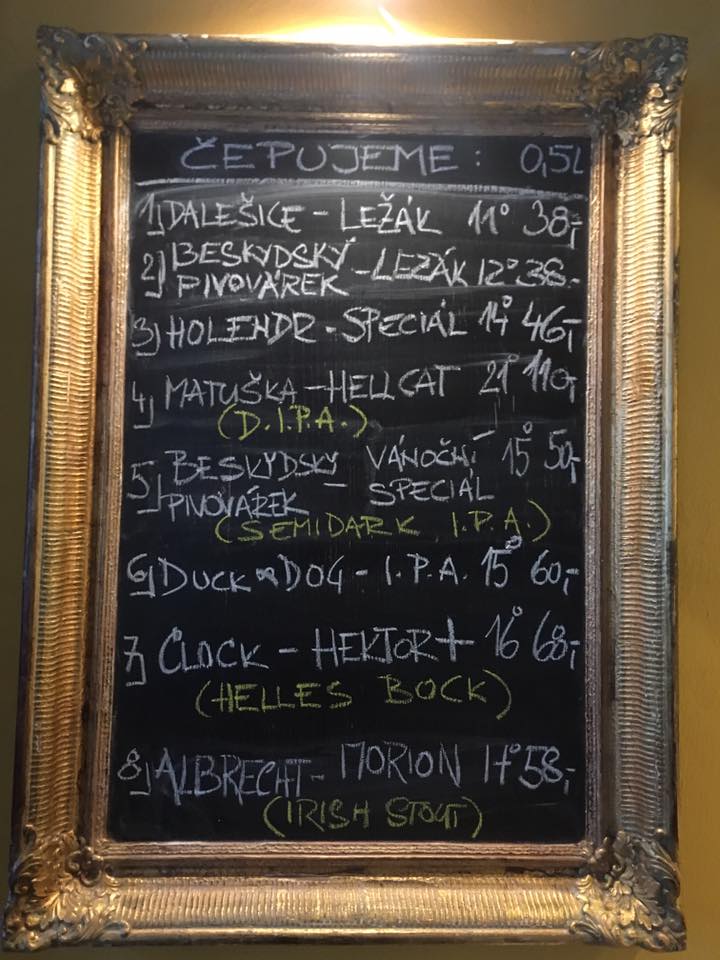 ČEPUJEME: 0,5L
1) DALEŠICE - LEŽÁK 11° 38,-
2) BESKYDSKÝ
PIVOVÁREK - LEŽÁK 12° 38.-
3) HOLENDR - SPECIÁL 14° 46,-
4) MATUŠKA - HELLCAT 21° 110,-
(D.I.P.A.)
5) BESKYDSKÝ VÁNOČNÍ 15° 50,-
PIVOVÁREK - SPECIÁL
(SEMIDARK I.P.A.)
6) DUCK & DOG - I.P.A. 15° 60,-
7) CLOCK - HEKTOR+ 16° 68,-
(HELLES BOCK)
8) ALBRECHT - MORION 17° 58,-
(IRISH STOUT)